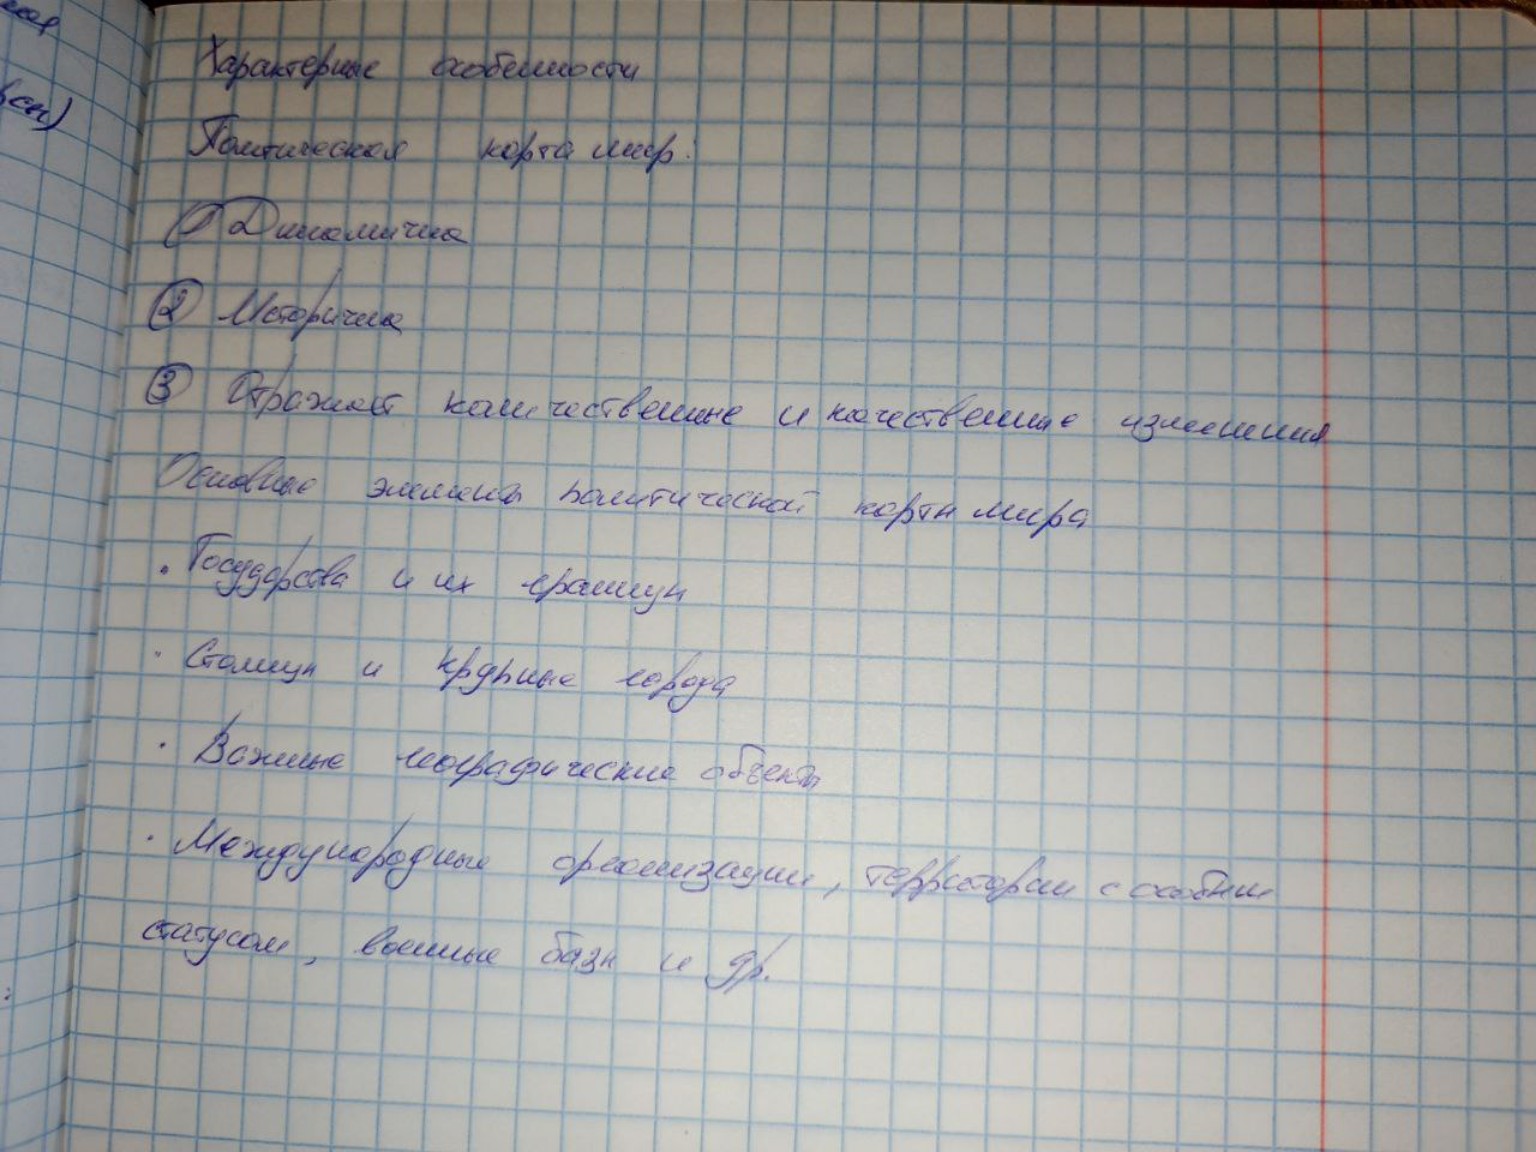 Характерные особенности
Политическая карта мир:
① Динамична
② Исторична
③ Отражает количественные и качественные изменения
Основные элементы политической карты мира
• Государства и их границы
• Столицы и крупные города
• Важные географические объекты
• Международные организации, территории с особым
статусом, военные базы и др.